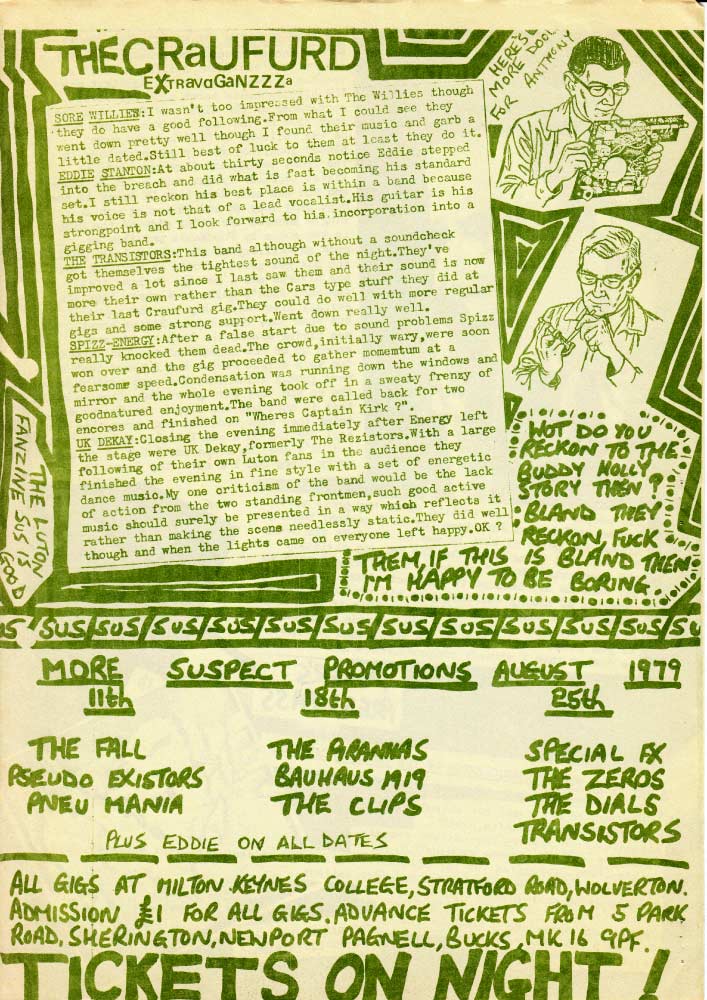 THE CRaUFURD
EXTravaGaNZZZa
HERE'S
MORE DOOL
FOR ANTHONY
SORE WILLIES:I wasn't too impressed with The Willies though
they do have a good following.From what I could see they
went down pretty well though I found their music and garb a
little dated.Still best of luck to them at least they do it.
EDDIE STANTON:At about thirty seconds notice Eddie stepped
into the breach and did what is fast becoming his standard
set.I still reckon his best place is within a band because
his voice is not that of a lead vocalist.His guitar is his
strongpoint and I look forward to his incorporation into a
gigging band.
THE TRANSISTORS:This band although without a soundcheck
got themselves the tightest sound of the night.They've
improved a lot since I last saw them and their sound is now
more their own rather than the Cars type stuff they did at
their last Craufurd gig.They could do well with more regular
gigs and some strong support.Went down really well.
SPIZZ-ENERGY:After a false start due to sound problems Spizz
really knocked them dead.The crowd,initially wary,were soon
won over and the gig proceeded to gather momemtum at a
fearsome speed.Condensation was running down the windows and
mirror and the whole evening took off in a sweaty frenzy of
goodnatured enjoyment.The band were called back for two
encores and finished on "Wheres Captain Kirk ?".
UK DEKAY:Closing the evening immediately after Energy left
the stage were UK Dekay,formerly The Rezistors.With a large
following of their own Luton fans in the audience they
finished the evening in fine style with a set of energetic
dance music.My one criticism of the band would be the lack
of action from the two standing frontmen,such good active
music should surely be presented in a way which reflects it
rather than making the scene needlessly static.They did well
though and when the lights came on everyone left happy.OK ?
THE LUTON
FANZINE SUS IS
GOOD
WOT DO YOU
RECKON TO THE
BUDDY HOLLY
STORY THEN ?
BLAND THEY
RECKON, FUCK
THEM, IF THIS IS BLAND THEN
I'M HAPPY TO BE BORING.
SUS/SUS/SUS/SUS/SUS/SUS/SUS/SUS/SUS/SUS/SUS/SUS/SU
MORE SUSPECT PROMOTIONS AUGUST 1979
11th 18th 25th
THE FALL THE PIRANHAS SPECIAL FX
PSEUDO EXISTORS BAUHAUS 1919 THE ZEROS
PNEU MANIA THE CLIPS THE DIALS
TRANSISTORS
PLUS EDDIE ON ALL DATES
ALL GIGS AT MILTON KEYNES COLLEGE, STRATFORD ROAD, WOLVERTON.
ADMISSION £1 FOR ALL GIGS. ADVANCE TICKETS FROM 5 PARK
ROAD, SHERINGTON, NEWPORT PAGNELL, BUCKS, MK16 9PF.
TICKETS ON NIGHT !